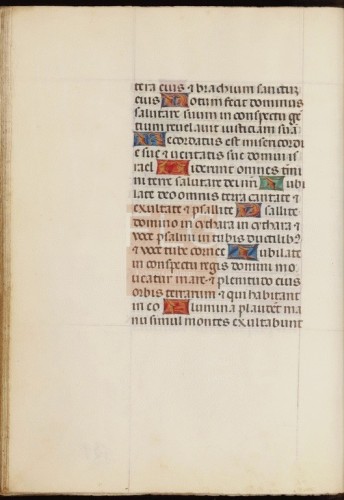 tera eius ⁊ brachium sanctuȝ
eius Notum fecit dominus
salutare suum in conspectu gē
tium revelavit iusticiam suā
Recordatus est misericordi
e sue ⁊ veritatis sue domui is
rael Viderunt omnes t̄mi
ni terre salutare dei nr̄i Iubi
late deo omnis terra cantate ⁊
exultate ⁊ psallite Psallite
domino in cythara in cythara ⁊
voce psalmi in tubis ductilibȝ
⁊ voce tube cornee Iubilate
in conspectu regis domini mo
veatur mare ⁊ plenitudo eius
orbis terrarum ⁊ qui habitant
in eo Flumina plaudēt ma
nu simul montes exultabunt